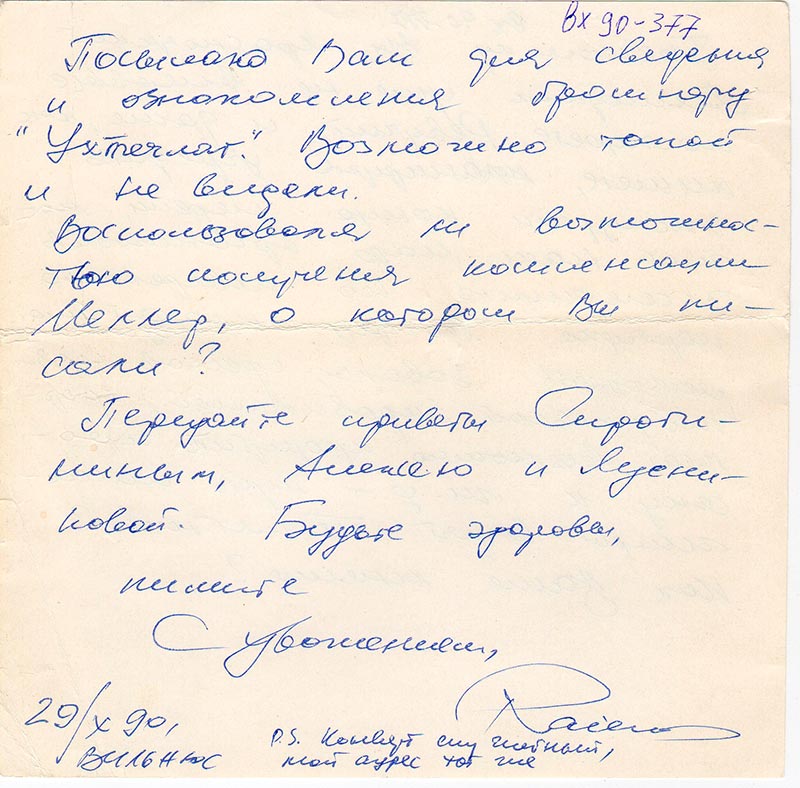 Вх 90-377
Посылаю Вам для сведения
и ознакомления брошюру
"Ухтпечлаг". Возможно такой
и не видели.
Воспользовался ли возможнос-
тью получения компенсации
Меллер, о котором Вы пи-
сали?
Передайте приветы Сироти-
ниным, Алексею и
новой. Будьте здоровы,
пишите
С уважением,
29/X 90,
Вильнюс
P.S. Конверт случайный,
мой адрес тот же